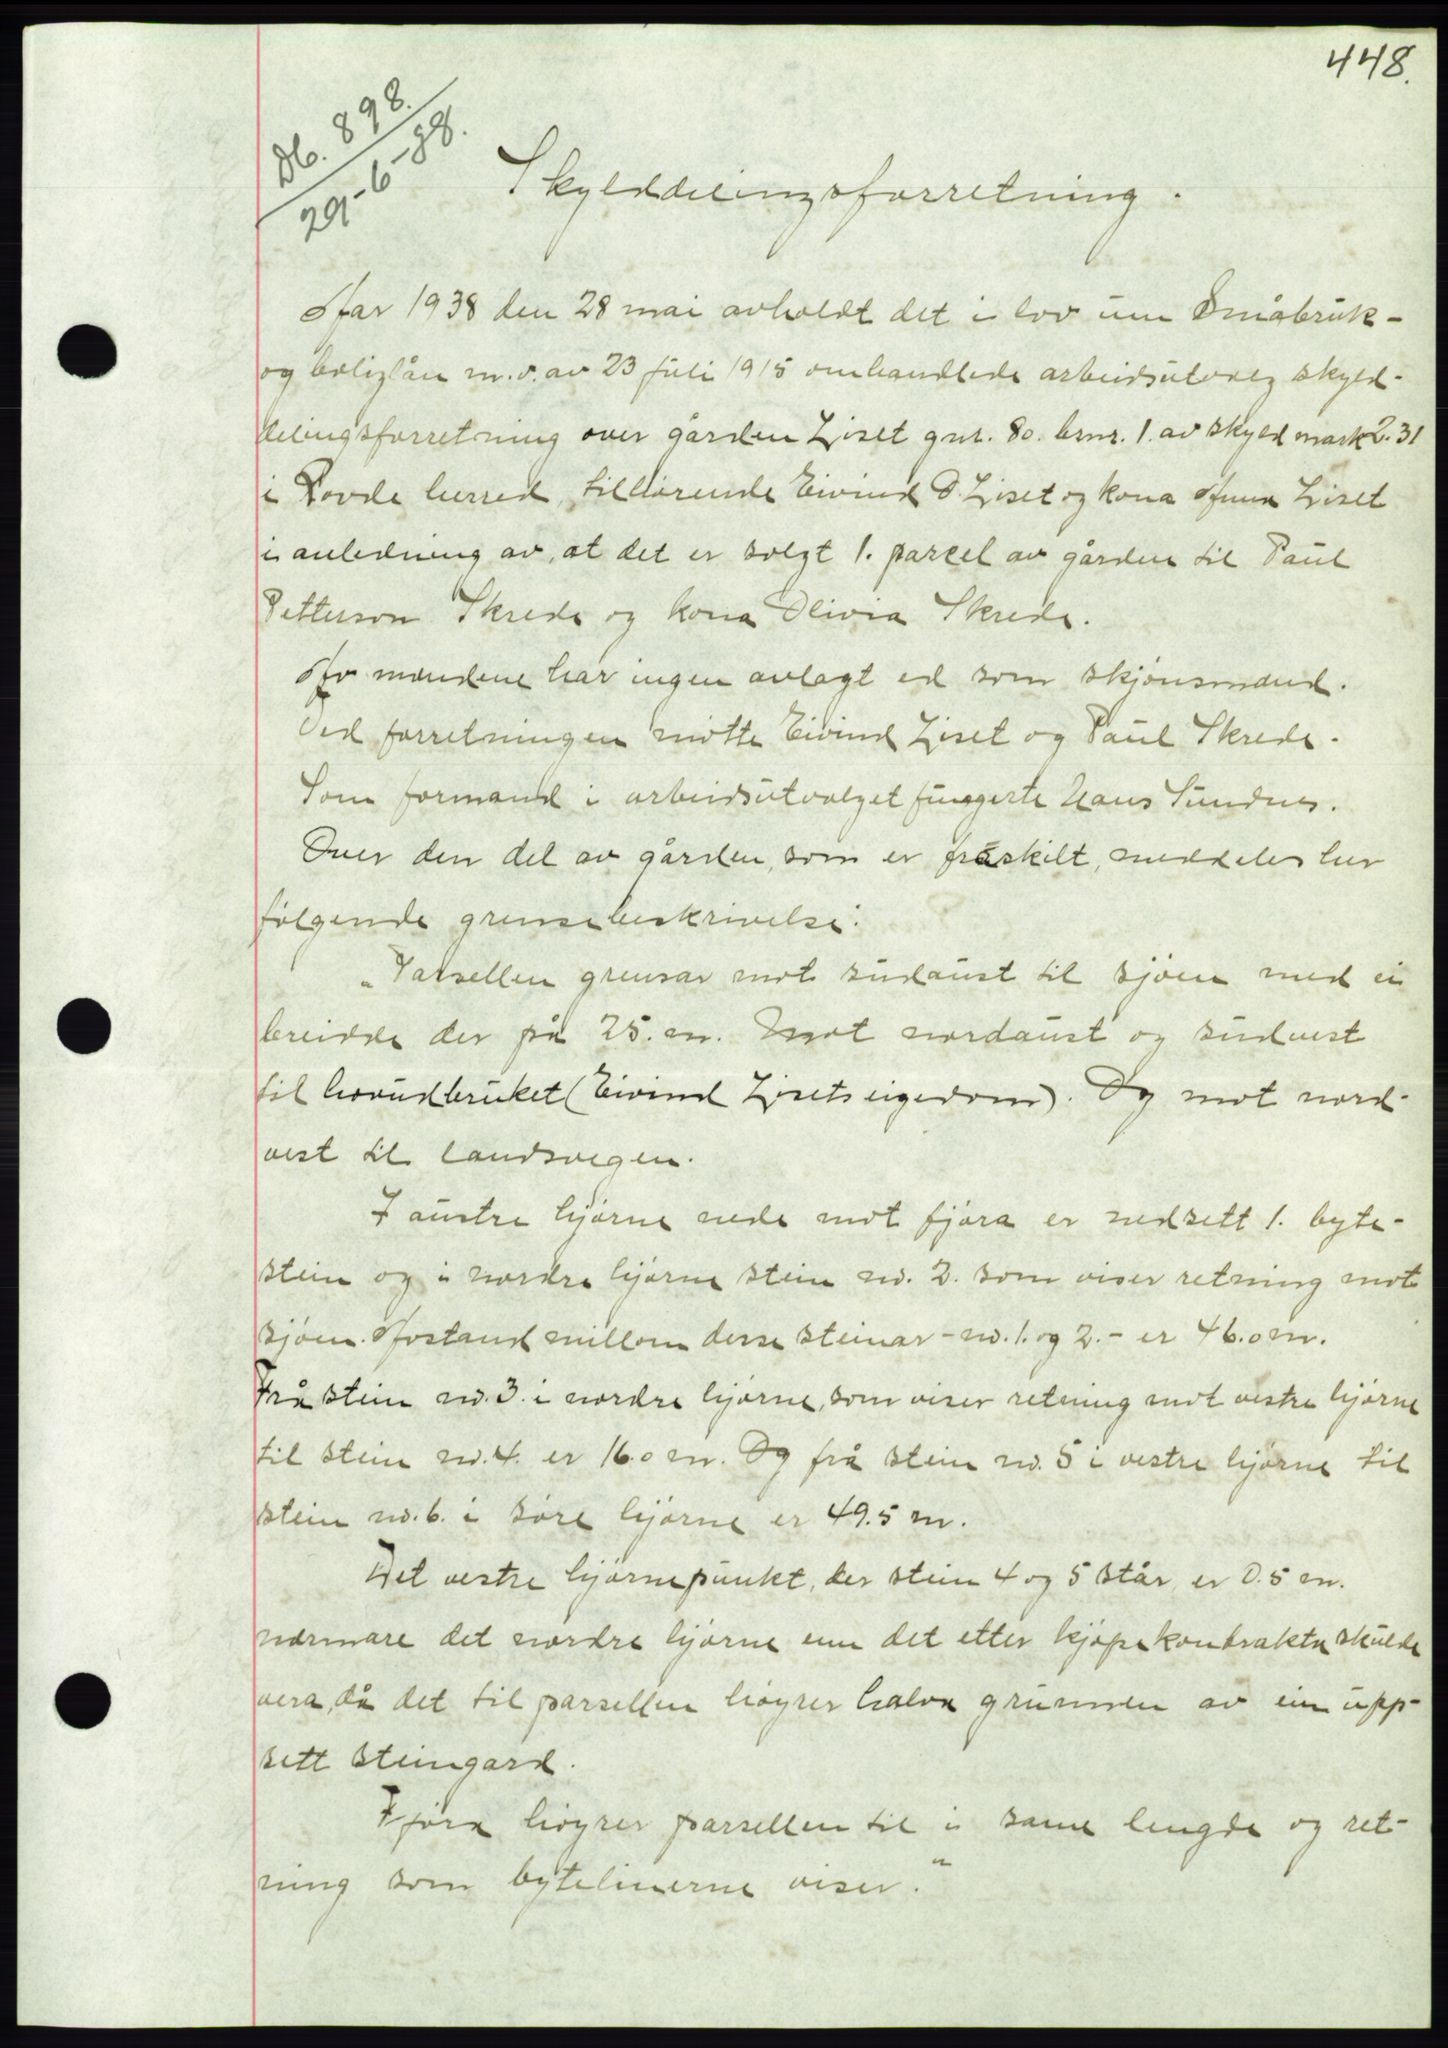 448.
Db. 898.
29-6-38.
Skylddelingsforretning.
Aar 1938 den 28 mai avholdt det i lov um Småbruk-
og boliglån m.v. av 23 juli 1915 omhandlede arbeidsutvalg skyld-
delingsforretning over gården Liset gnr. 80. brnr. 1. av skyld mark 2.31
i Rovde herred, tilhørende Eivind O. Liset og kona Anna Liset
i anledning av, at det er solgt 1. parcel av gården til Paul
Petterson Skrede og kona Olivia Skrede.
Av mændene har ingen avlagt ed som skjønsmænd.
Ved forretningen møtte Eivind Liset og Paul Skrede.
Som formand i arbeidsutvalget fungerte Hans Sundnes.
Over den del av gården, som er fråskilt, meddeles her
følgende grensebeskrivelse:
"Parsellen grensar mot sudaust til sjøen med ei
breidde der på 25. m. Mot nordaust og sudvest
til hovudbruket (Eivind Lisets eigedom). Og mot nord-
vest til landsvegen.
I austre hjørne nede mot fjøra er nedsett 1. byte-
stein og i nordre hjørne stein no. 2. som viser retning mot
sjøen. Avstand millom desse steinar - no. 1. og 2. - er 46.0 m.
Frå stein no. 3. i nordre hjørne, som viser retning mot vestre hjørne
til stein no. 4. er 16.0 m. Og frå stein no. 5 i vestre hjørne til
stein no. 6. i søre hjørne er 49.5 m.
Det vestre hjørnepunkt, der stein 4 og 5 står, er 0.5 m.
nærmare det nordre hjørne enn det etter kjøpekontrakta skulde
vera, då det til parsellen høyrer halva grunnen av ein upp-
sett steingard.
Fjøra høyrer parsellen til i same lengde og ret-
ning som bytelinerne viser."